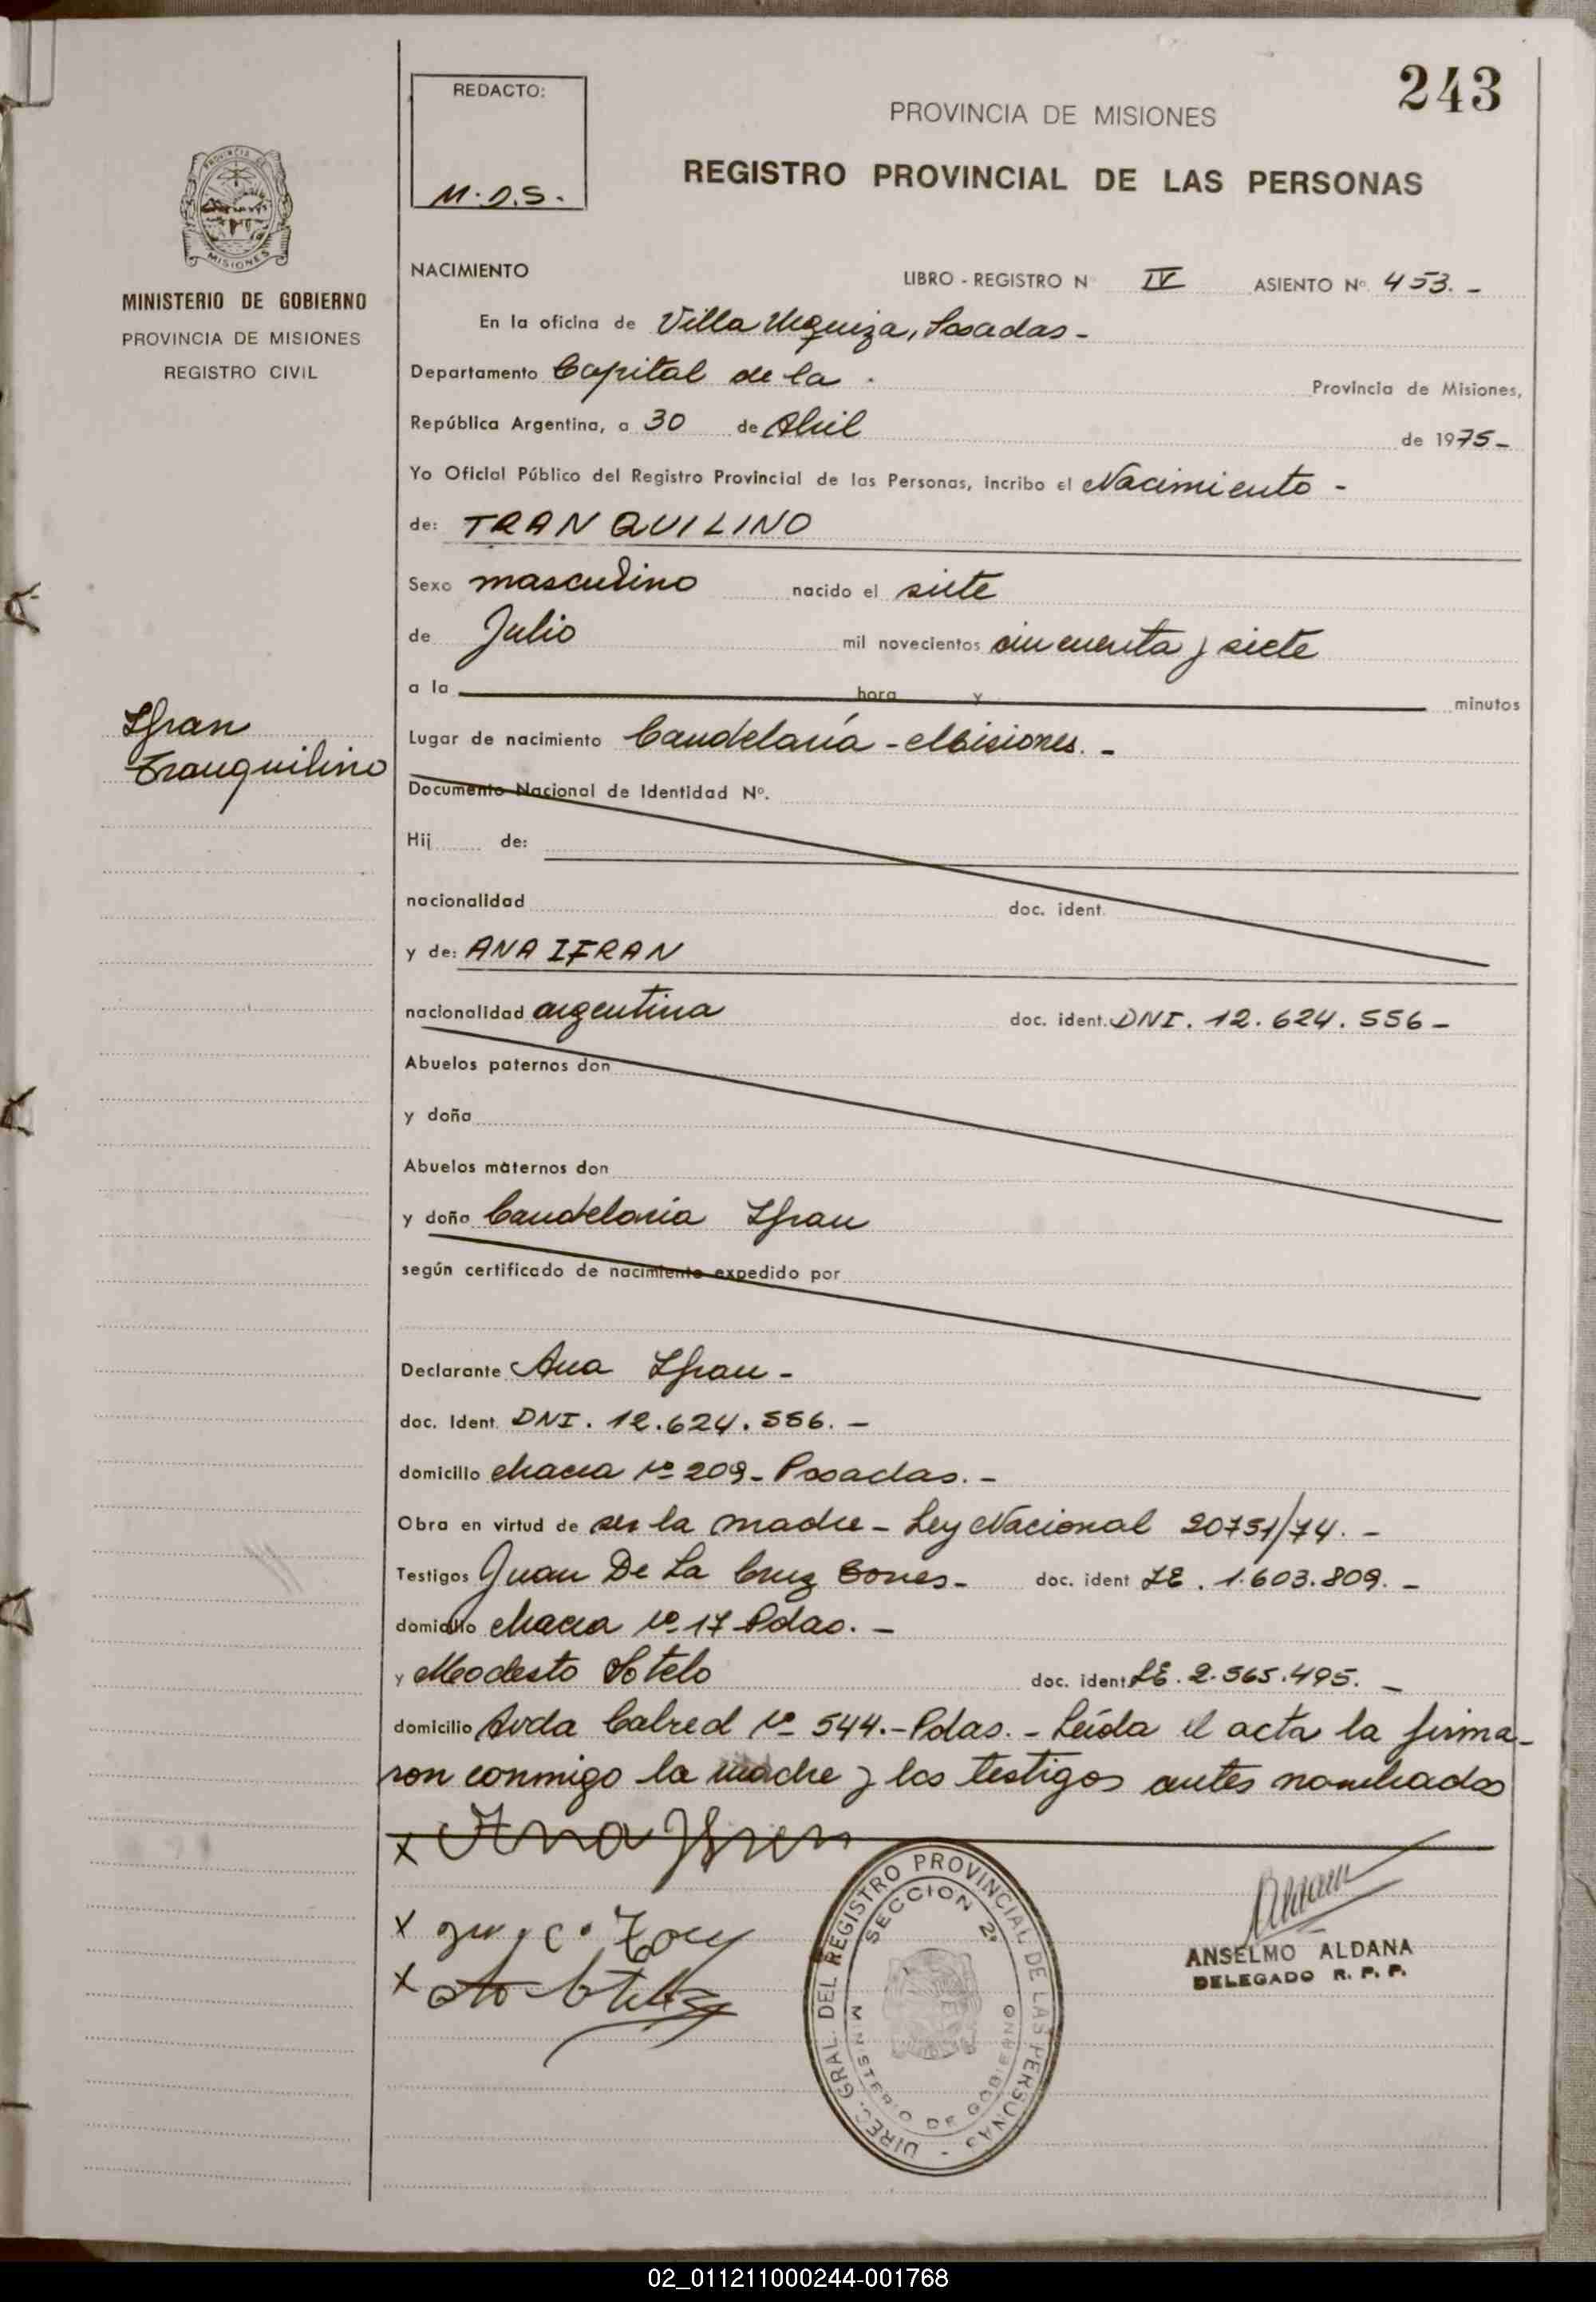 243
REDACTO:
M.D.S.-
PROVINCIA DE MISIONES
REGISTRO PROVINCIAL DE LAS PERSONAS
PROVINCIA DE
MISIONES
MINISTERIO DE GOBIERNO
PROVINCIA DE MISIONES
REGISTRO CIVIL
NACIMIENTO LIBRO - REGISTRO N IV ASIENTO Nº 453.-
En la oficina de Villa Urquiza, Posadas-
Departamento Capital de la . Provincia de Misiones,
República Argentina, a 30 de Abril de 1975-
Yo Oficial Público del Registro Provincial de las Personas, incribo el Nacimiento-
de: TRANQUILINO
Sexo masculino nacido el siete
de Julio mil novecientos cincuenta y siete
a la hora y minutos
Ifran
Tranquilino
Lugar de nacimiento Candelaria - Misiones.-
Documento Nacional de Identidad Nº.
Hij de:
nacionalidad doc. ident.
y de: ANA IFRAN
nacionalidad argentina doc. ident. DNI. 12.624.556-
Abuelos paternos don
y doña
Abuelos maternos don
y doña Candelaria Ifran
según certificado de nacimiento expedido por
Declarante Ana Ifran-
doc. Ident. DNI. 12.624.556.-
domicilio chacra Nº 209- Posadas.-
Obra en virtud de ser la madre- Ley Nacional 20751/74.-
Testigos Juan De La Cruz doc. ident LE. 1.603.809.-
domicilio chacra Nº 17 Pdas.-
y Modesto Sotelo doc. ident LE. 2.565.495.-
domicilio Avda Cabred Nº 544.- Pdas.- Leída el acta la firma-
ron conmigo la madre y los testigos antes nombrados
x Ana Ifran
x
x
DIREC. GRAL. DEL REGISTRO PROVINCIAL DE LAS PERSONAS -
SECCION 2ª
MINISTERIO DE GOBIERNO
Aldana
ANSELMO ALDANA
DELEGADO R. P. P.
02_011211000244-001768